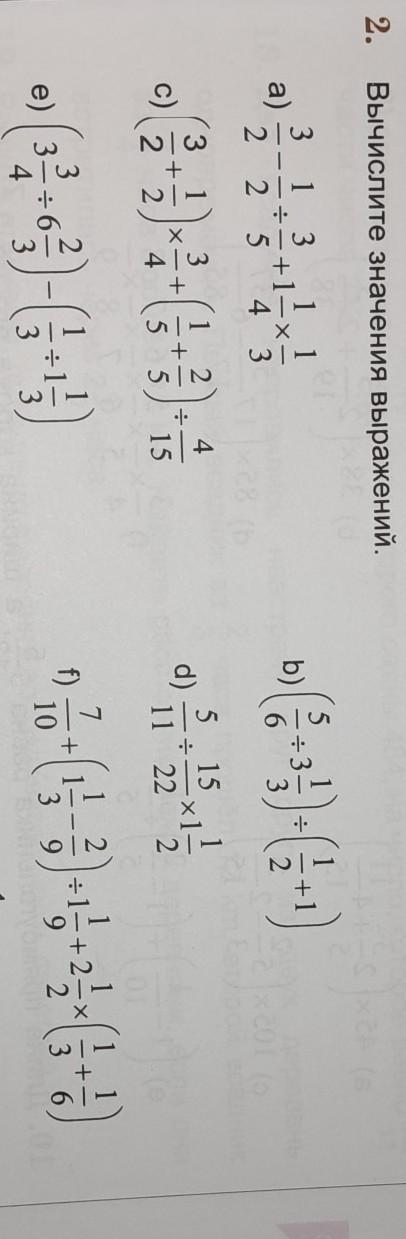 2. Вычислите значения выражений.
a) 3/2 − 1/2 ÷ 3/5 + 1 1/4 × 1/3
b) (5/6 ÷ 3 1/3) ÷ (1/2 + 1)
c) (3/2 + 1/2) × 3/4 + (1/5 + 2/5) ÷ 4/15
d) 5/11 ÷ 15/22 × 1 1/2
e) (3 3/4 ÷ 6 2/3) − (1/3 ÷ 1 1/3)
f) 7/10 + (1 1/3 − 2/9) ÷ 1 1/9 + 2 1/2 × (1/3 + 1/6)